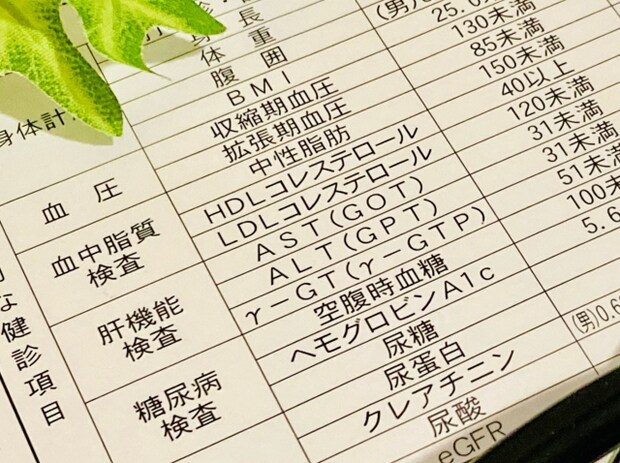 長
体 重
腹 囲
(男)
身体計
BMI
25.0
血 圧
収縮期血圧
130未満
拡張期血圧
85未満
血中脂質
検査
中性脂肪
150未満
HDLコレステロール
40以上
LDLコレステロール
120未満
肝機能
検査
AST(GOT)
31未満
ALT(GPT)
31未満
γ−GT(γ−GTP)
51未満
糖尿病
検査
空腹時血糖
100未
ヘモグロビンA1c
5.6
尿糖
な健診項目
尿蛋白
クレアチニン
(男)0.6
尿酸
eGFR